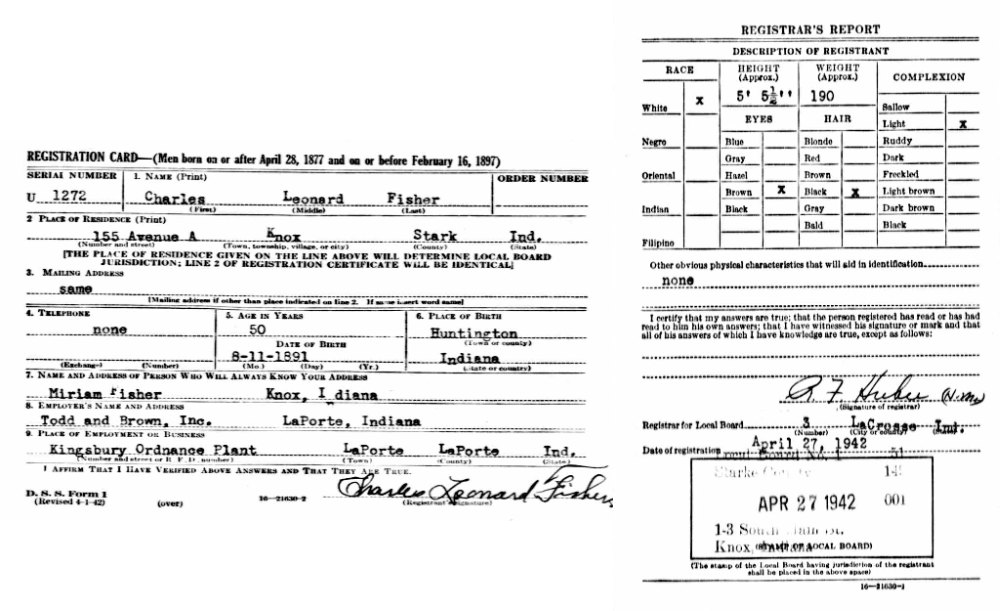 REGISTRATION CARD—(Men born on or after April 28, 1877 and on or before February 16, 1897)
SERIAL NUMBER 1. NAME (Print) ORDER NUMBER
U 1272 Charles Leonard Fisher
(First) (Middle) (Last)
2 PLACE OF RESIDENCE (Print)
155 Avenue A Knox Stark Ind.
(Number and street) (Town, township, village, or city) (County) (State)
[THE PLACE OF RESIDENCE GIVEN ON THE LINE ABOVE WILL DETERMINE LOCAL BOARD
JURISDICTION; LINE 2 OF REGISTRATION CERTIFICATE WILL BE IDENTICAL]
3. MAILING ADDRESS
same
[Mailing address if other than place indicated on line 2. If same insert word same]
4. TELEPHONE 5. AGE IN YEARS 6. PLACE OF BIRTH
none 50 Huntington
DATE OF BIRTH (Town or county)
8-11-1891 Indiana
(Exchange) (Number) (Mo.) (Day) (Yr.) (State or country)
7. NAME AND ADDRESS OF PERSON WHO WILL ALWAYS KNOW YOUR ADDRESS
Miriam Fisher Knox, I diana
8. EMPLOYER'S NAME AND ADDRESS
Todd and Brown, Inc. LaPorte, Indiana
9. PLACE OF EMPLOYMENT OR BUSINESS
Kingsbury Ordnance Plant LaPorte LaPorte Ind.
(Number and street or R. F. D. number) (Town) (County) (State)
I AFFIRM THAT I HAVE VERIFIED ABOVE ANSWERS AND THAT THEY ARE TRUE.
D. S. S. Form 1
(Revised 4-1-42) (over) 16—21630-2 Charles Leonard Fisher
(Registrant's signature)
REGISTRAR'S REPORT
DESCRIPTION OF REGISTRANT
RACE HEIGHT (Approx.) WEIGHT (Approx.) COMPLEXION
5' 5½'' 190
White X Sallow
EYES HAIR Light X
Negro Blue Blonde Ruddy
Gray Red Dark
Oriental Hazel Brown Freckled
Brown X Black X Light brown
Indian Black Gray Dark brown
Bald Black
Filipino
Other obvious physical characteristics that will aid in identification
none
I certify that my answers are true; that the person registered has read or has had
read to him his own answers; that I have witnessed his signature or mark and that
all of his answers of which I have knowledge are true, except as follows:
(Signature of registrar)
Registrar for Local Board 3 LaCrosse Ind.
(Number) (City or county)
Date of registration April 27, 1942
51
APR 27 1942 001
1-3 South
Knox,
(STAMP OF LOCAL BOARD)
(The stamp of the Local Board having jurisdiction of the registrant
shall be placed in the above space)
16—21630-1